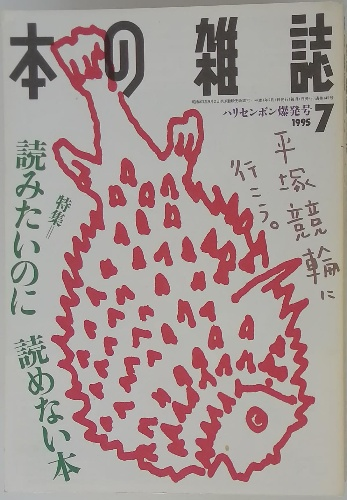 本の雑誌
ハリセンボン爆発号
1995 7
平塚競輪に
行こう。
特集=
読みたいのに
読めない本